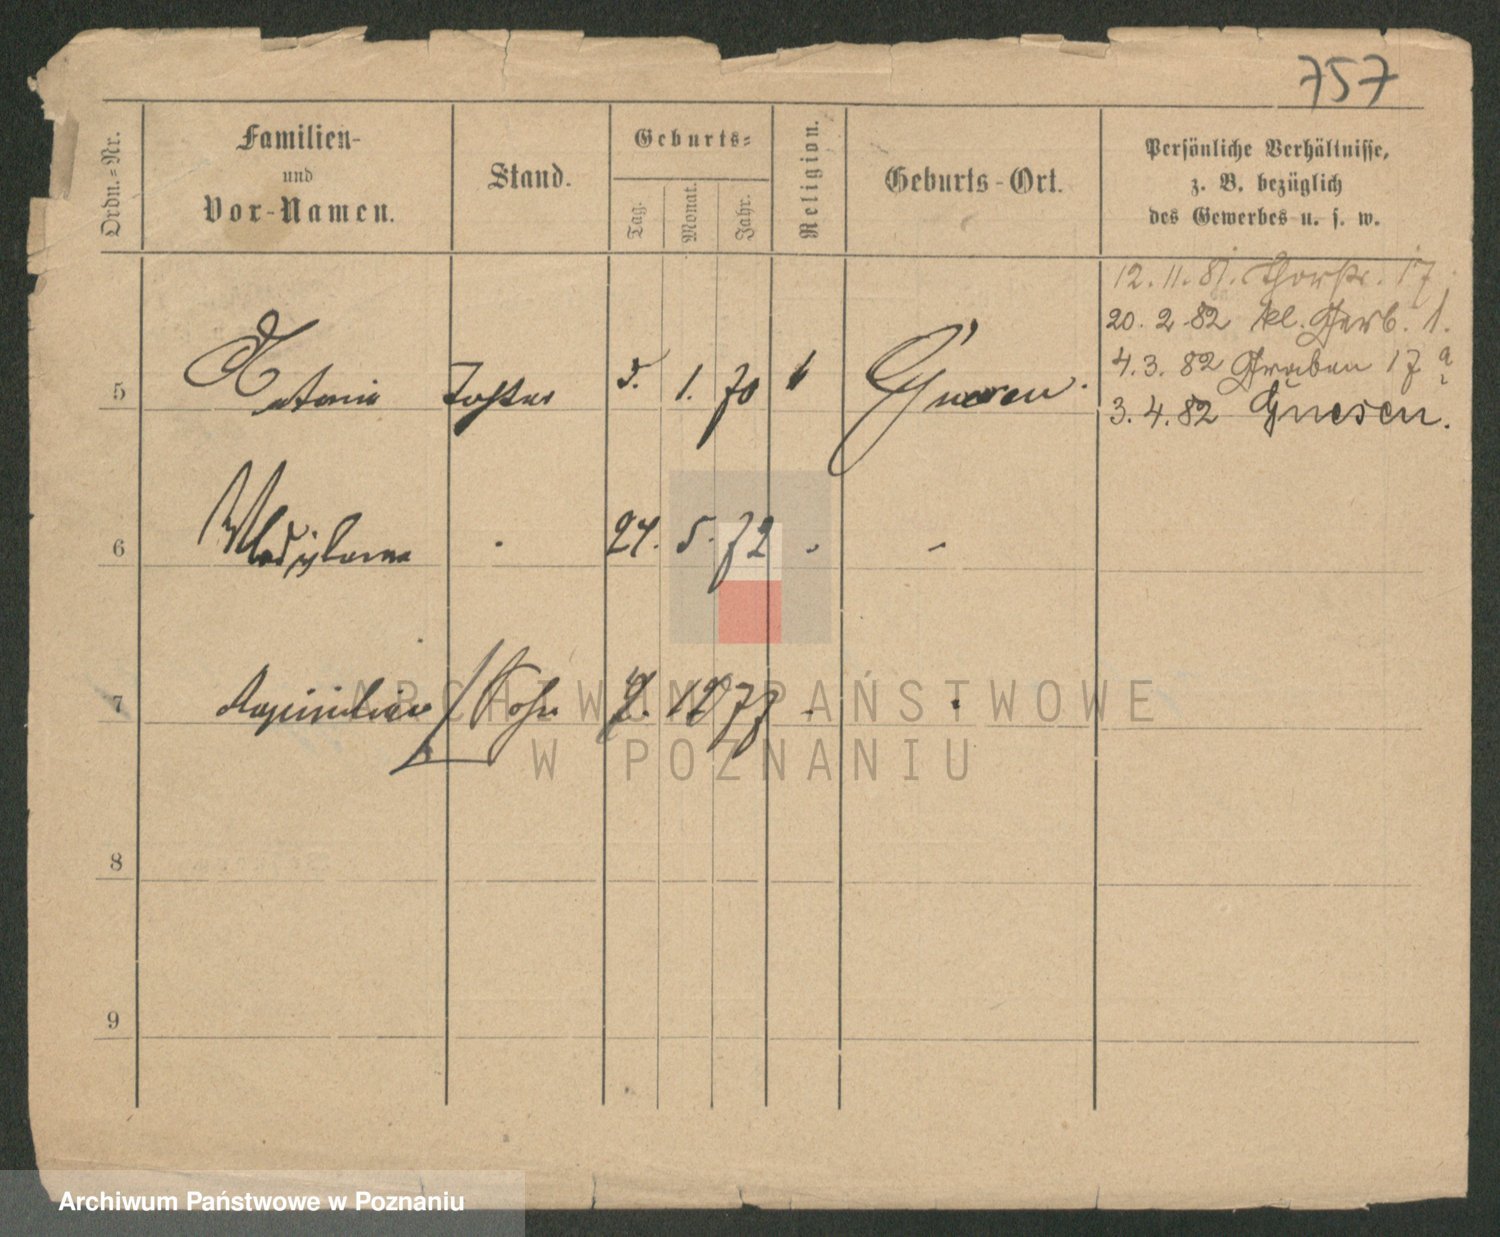 757
Ordn.=Nr.
Familien-
und
Vor-Namen.
Stand.
Geburts=
Tag.
Monat.
Jahr.
Religion.
Geburts-Ort.
Persönliche Verhältnisse,
z. B. bezüglich
des Gewerbes u. s. w.
12. 11. 81. Thorstr. 17.
20. 2. 82 kl. Gerb. 1.
4. 3. 82 Graben 17 a
3. 4. 82 Gnesen.
5 Antonie Tochter 5. 1. 70 k Gnesen.
6 Wladyslawa - 24. 5. 72 - -
7 Maximilian Sohn 7. 12 77 - -
8
9
ARCHIWUM PAŃSTWOWE
W POZNANIU
Archiwum Państwowe w Poznaniu